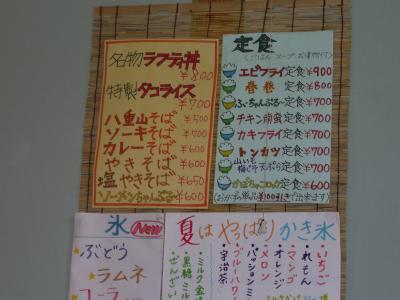 名物ラフティ丼
¥800
特製タコライス
¥700
八重山そば ¥500
ソーキそば ¥700
カレーそば ¥600
やきそば ¥600
塩やきそば ¥650
ソーメンちゃんぷる ¥600
定食
エビフライ定食 ¥900
春巻 定食 ¥800
ふーちゃんぷる〜定食 ¥700
チキン南蛮定食 ¥700
カキフライ定食 ¥700
トンカツ 定食 ¥700
定食 ¥700
かぼちゃコロッケ定食 ¥600
(おかず単品¥100引きで出来ます)
氷 New
ぶどう
ラムネ
コーラ
夏はやっぱりかき氷
いちご
れもん
マンゴ
オレンジ
メロン
パッション
ブルーハワイ
宇治茶
ミルク金
黒糖ミル
ぜんざい